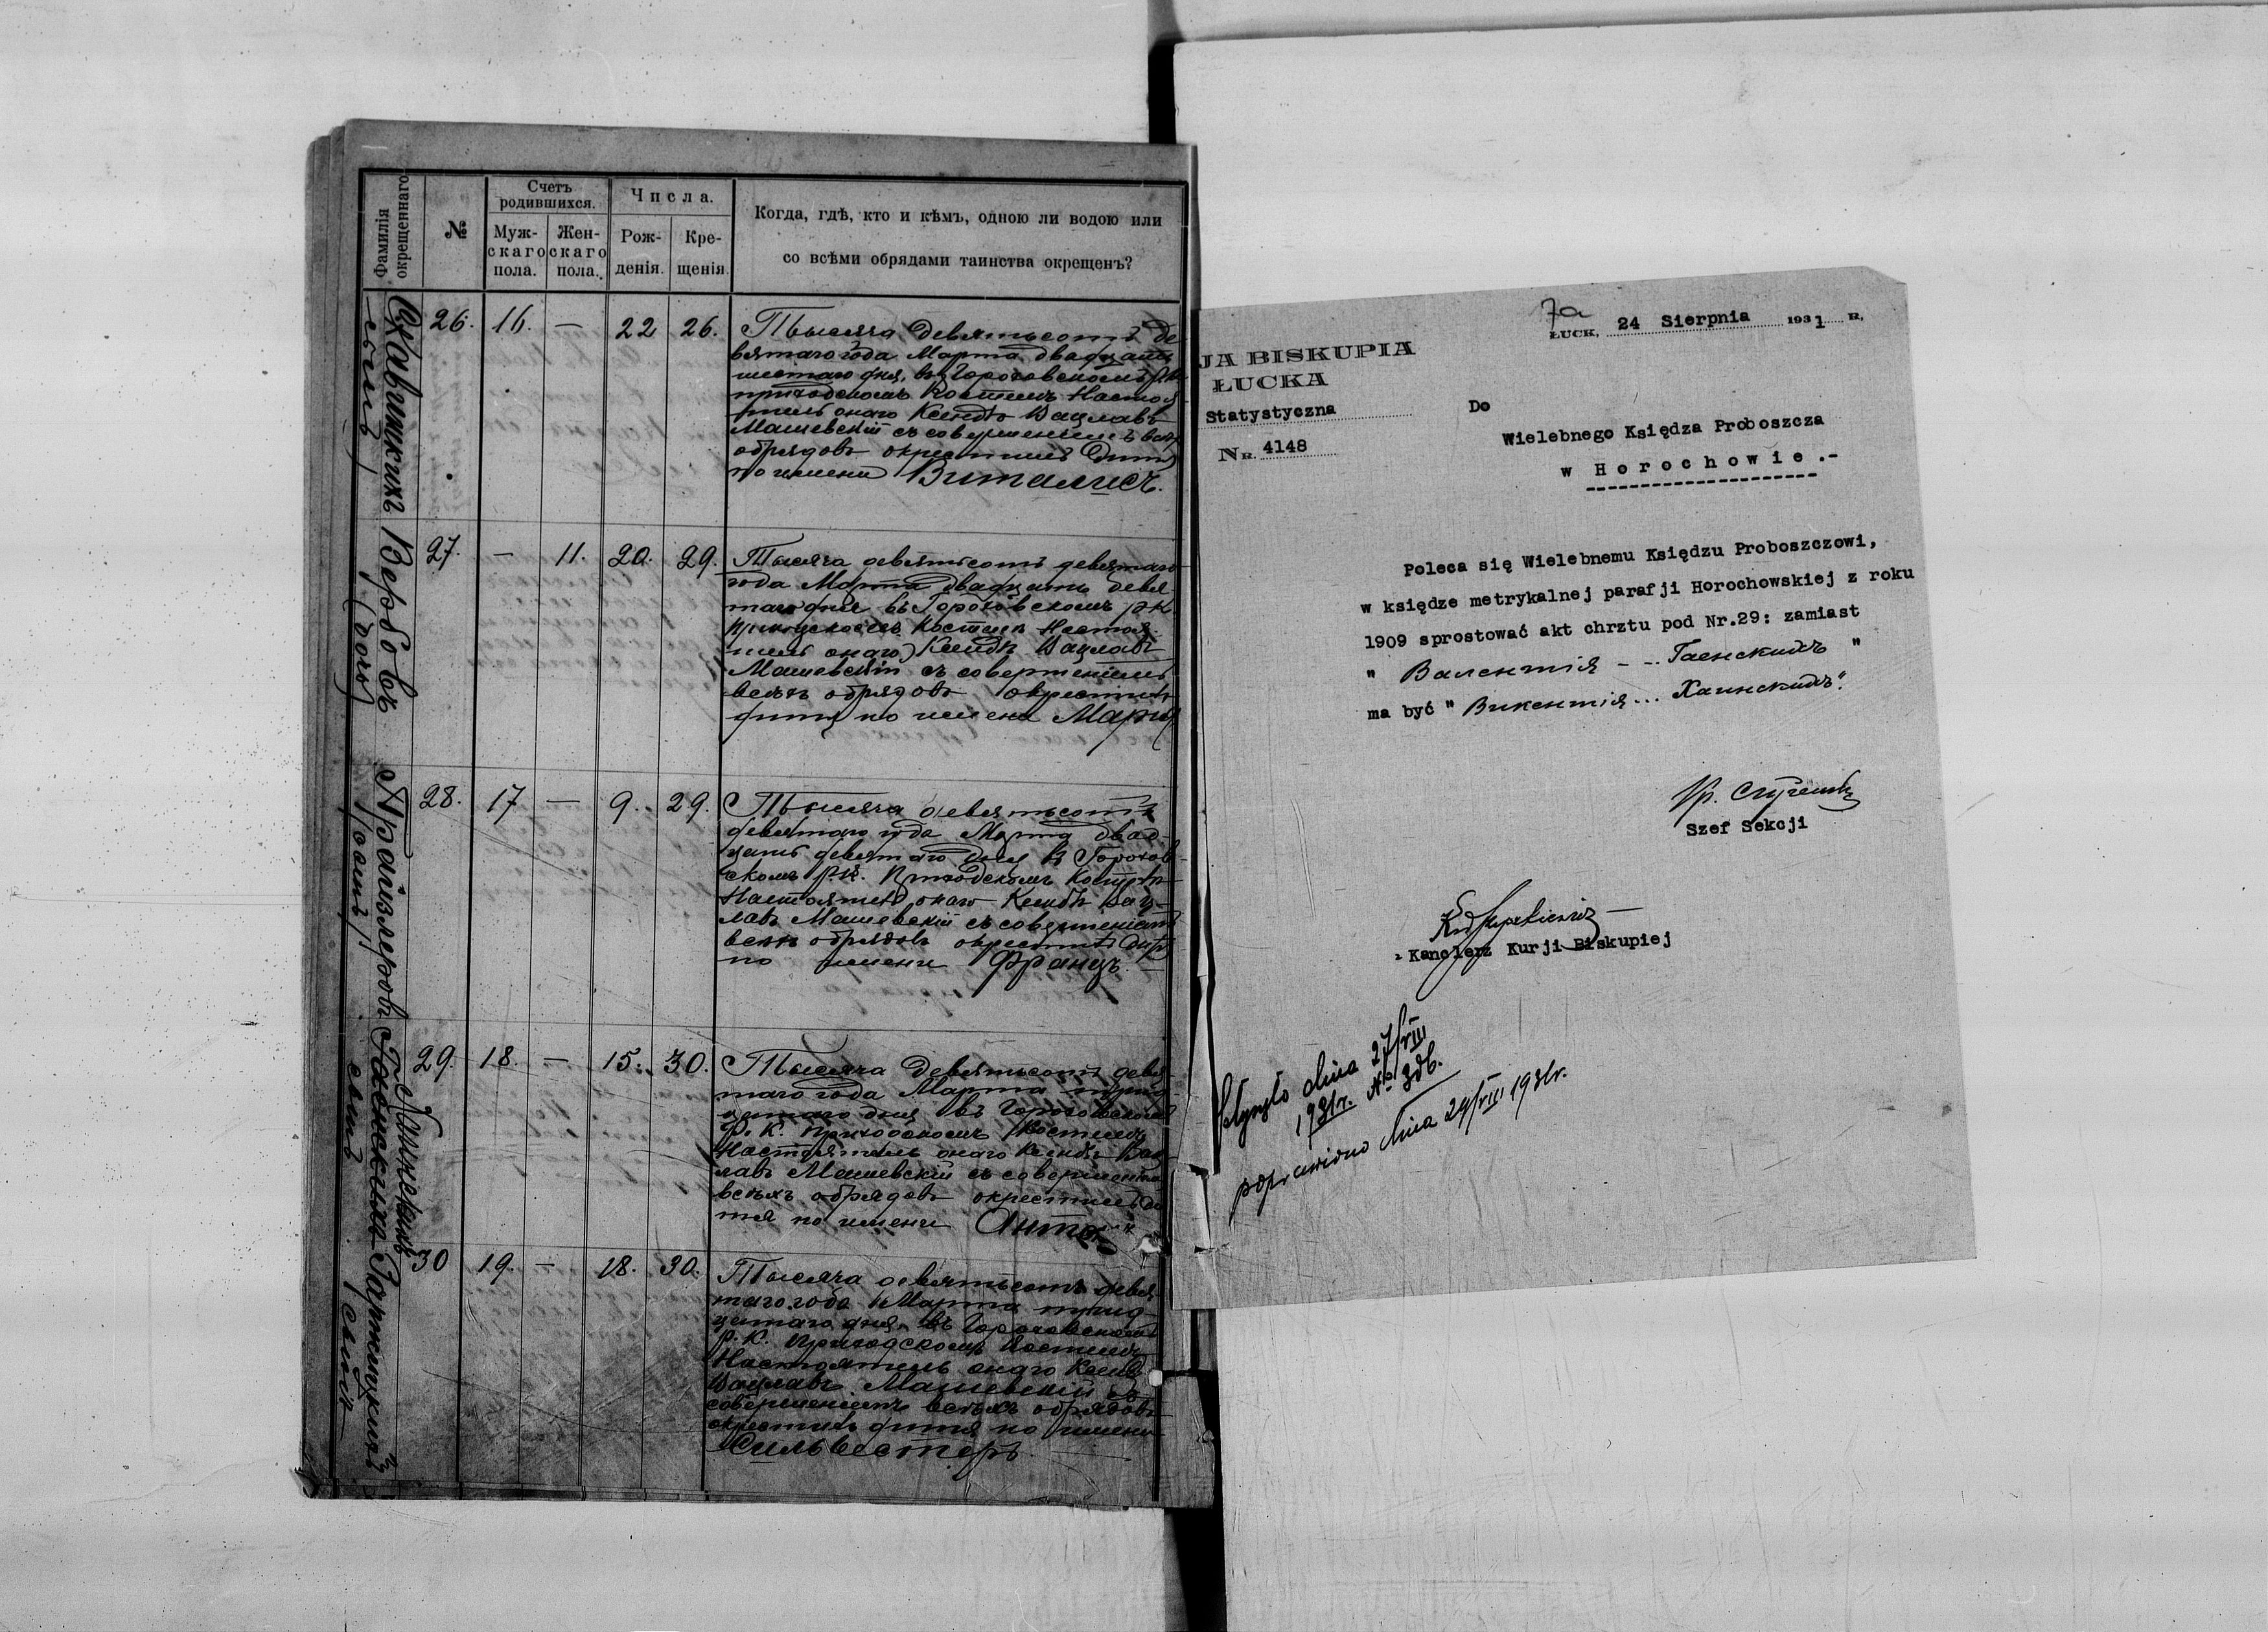 Фамилія окрещеннаго
№
Счетъ родившихся.
Муж-скаго пола.
Жен-скаго пола.
Числа.
Рож-денія.
Кре-щенія.
Когда, гдѣ, кто и кѣмъ, одною ли водою или
со всѣми обрядами таинства окрещенъ?
(сынъ)
26. 16. — 22 26.
Тысяча девятьсотъ де
вятаго года Марта двадцать
шестаго дня, въ Гороховскомъ Р.К.
приходскомъ Костелѣ Настоя
тель онаго Ксендзъ Вацлавъ
Машевскій съ совершеніемъ всѣхъ
обрядовъ окрестилъ дитя
по имени Виталисъ.
Вербовъ
(дочь)
27. — 11. 20. 29.
Тысяча девятьсотъ девятаго
года Марта двадцать девя
таго дня въ Гороховскомъ Р.К.
приходскомъ Костелѣ Настоя
тель онаго Ксендзъ Вацлавъ
Машевскій съ совершеніемъ
всѣхъ обрядовъ окрестилъ
дитя по имени Марія
(сынъ)
28. 17 — 9. 29.
Тысяча девятьсотъ
девятаго года Марта двад-
цать девятаго дня въ Горохов-
скомъ Р.К. Приходскомъ Костелѣ
Настоятель онаго Ксендзъ Вац-
лавъ Машевскій съ совершеніемъ
всѣхъ обрядовъ окрестилъ дитя
по имени Францъ. —
Гаенскихъ
Хаинскихъ
сынъ
29. 18. — 15. 30.
Тысяча девятьсотъ девя
таго года Марта трид
цатаго дня въ Гороховскомъ
Р. К. приходскомъ Костелѣ
Настоятель онаго Ксендзъ Вац
лавъ Машевскій съ совершеніемъ
всѣхъ обрядовъ окрестилъ ди
тя по имени Антоній
(сынъ)
30 19. — 18. 30.
Тысяча девятьсотъ девя
таго года Марта трид
цатаго дня въ Гороховскомъ
Р. К. Приходскомъ Костелѣ
Настоятель онаго Ксендзъ
Вацлавъ Машевскій съ
совершеніемъ всѣхъ обрядовъ
окрестилъ дитя по имени
Сильвестеръ.
7a
ŁUCK, 24 Sierpnia 1931 R.
JA BISKUPIA
ŁUCKA
Statystyczna
NR. 4148
Do
Wielebnego Księdza Proboszcza
w Horochowie.-
Poleca się Wielebnemu Księdzu Proboszczowi,
w księdze metrykalnej parafji Horochowskiej z roku
1909 sprostować akt chrztu pod Nr.29: zamiast
" Валентія - -.. Гаенскихъ "
ma być " Викентія... Хаинскихъ".
Szef Sekcji
Kanclerz Kurji Biskupiej
dnia 27/VIII
1931r. №
poprawiono dnia 29/VIII 1931r.